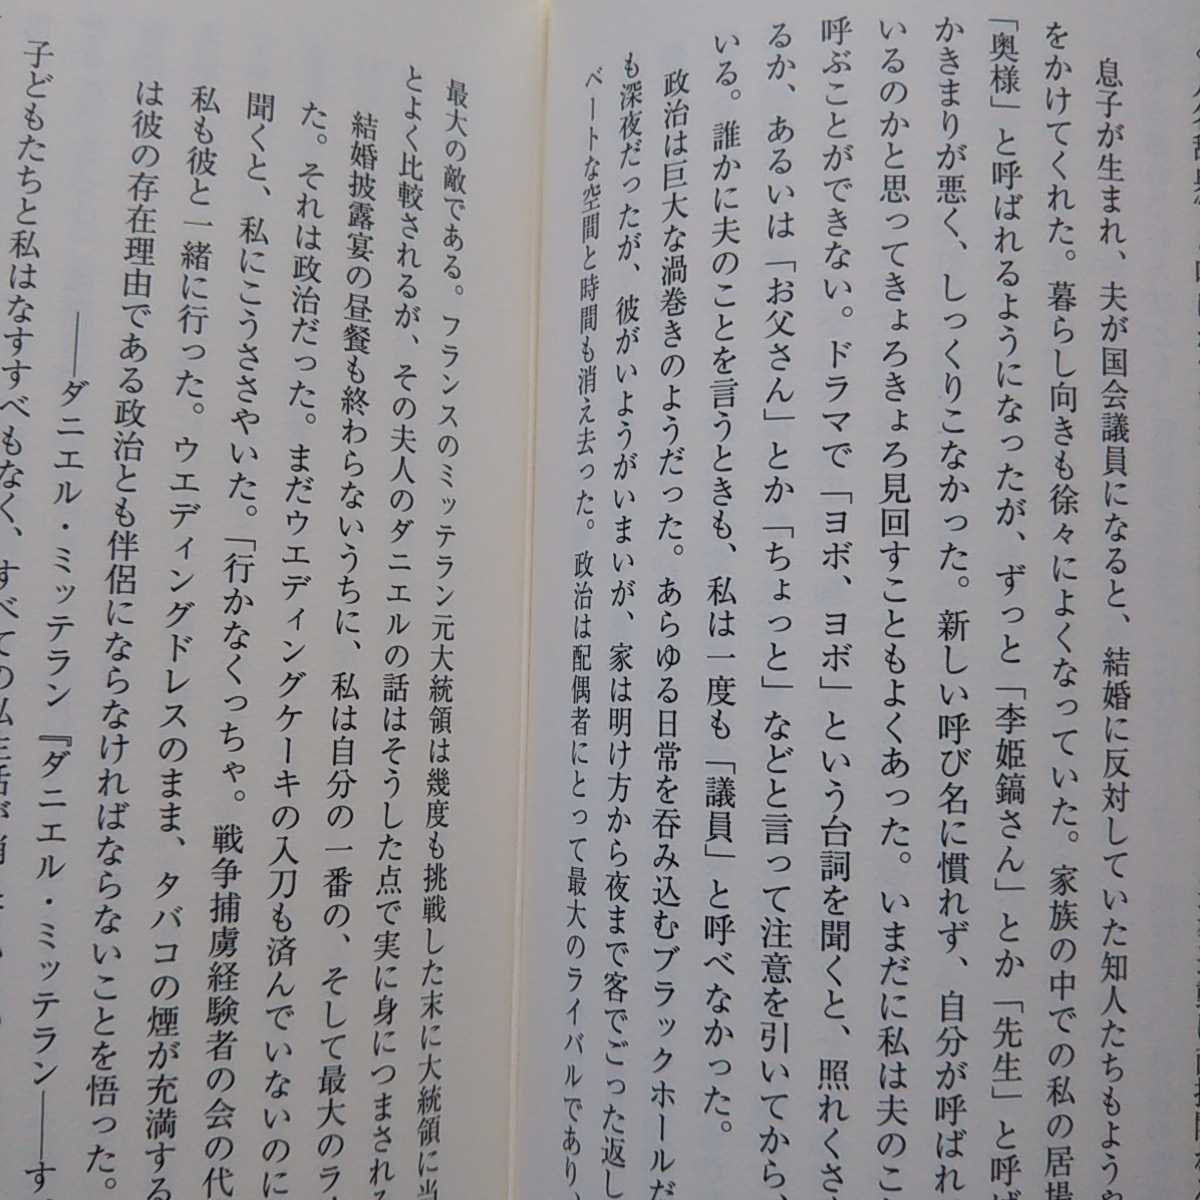 息子が生まれ、夫が国会議員になると、結婚に反対していた知人たちもよう
をかけてくれた。暮らし向きも徐々によくなっていた。家族の中での私の居場
「奥様」と呼ばれるようになったが、ずっと「李姫鎬さん」とか「先生」と呼ば
かきまりが悪く、しっくりこなかった。新しい呼び名に慣れず、自分が呼ばれ
いるのかと思ってきょろきょろ見回すこともよくあった。いまだに私は夫のこ
呼ぶことができない。ドラマで「ヨボ、ヨボ」という台詞を聞くと、照れくさ
るか、あるいは「お父さん」とか「ちょっと」などと言って注意を引いてから、
いる。誰かに夫のことを言うときも、私は一度も「議員」と呼べなかった。
政治は巨大な渦巻きのようだった。あらゆる日常を呑み込むブラックホールだ
も深夜だったが、彼がいようがいまいが、家は明け方から夜まで客でごった返し
ベートな空間と時間も消え去った。政治は配偶者にとって最大のライバルであり、
最大の敵である。フランスのミッテラン元大統領は幾度も挑戦した末に大統領に当
とよく比較されるが、その夫人のダニエルの話はそうした点で実に身につまされる
結婚披露宴の昼餐も終わらないうちに、私は自分の一番の、そして最大のラ
た。それは政治だった。まだウエディングケーキの入刀も済んでいないのに
聞くと、私にこうささやいた。「行かなくっちゃ。戦争捕虜経験者の会の代
私も彼と一緒に行った。ウエディングドレスのまま、タバコの煙が充満する
は彼の存在理由である政治とも伴侶にならなければならないことを悟った。
――ダニエル・ミッテラン『ダニエル・ミッテラン――す
子どもたちと私はなすすべもなく、すべての私生活が消